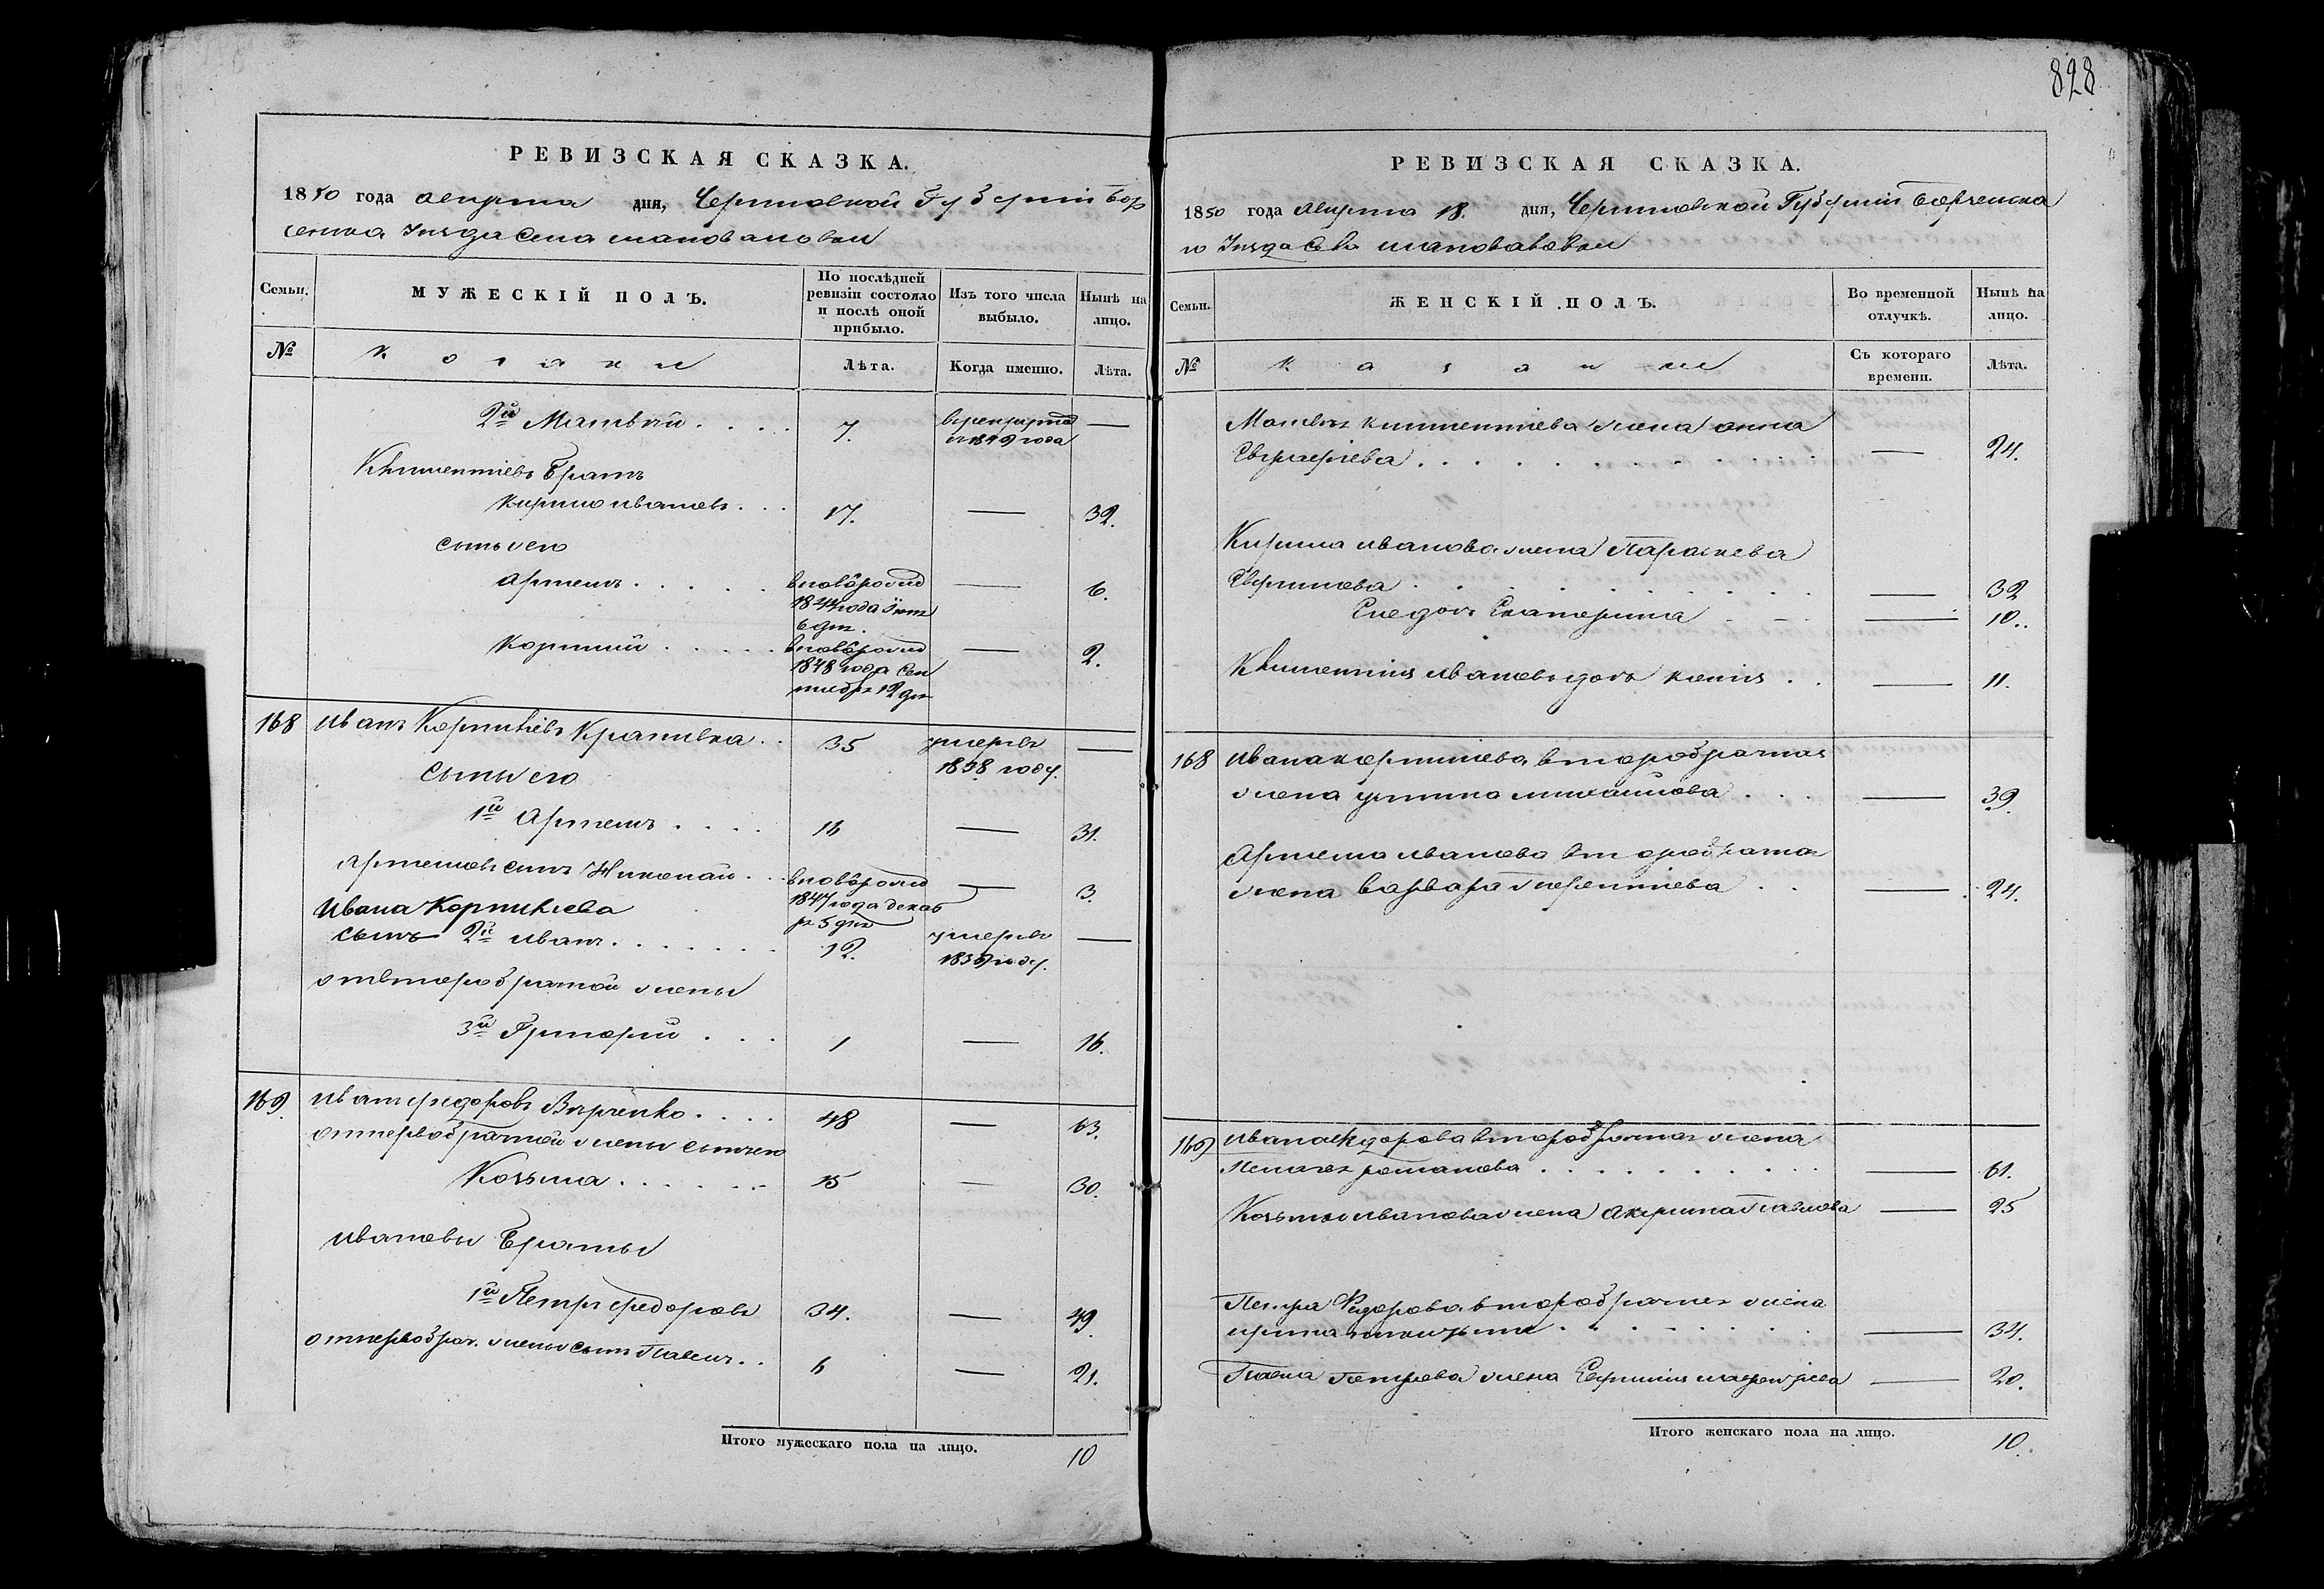 828
РЕВИЗСКАЯ СКАЗКА.
1850 года августа дня, Черниговской Губерніи Бор
зенска Уезда Села
Семьи. МУЖЕСКІЙ ПОЛЪ. По послѣдней ревизіи состояло и послѣ оной прибыло. Изъ того числа выбыло. Нынѣ на лицо.
№ Козаки Лѣта. Когда именно. Лѣта.
2й Матвѣй . . . . 7. —
в 1849 года
Климентіевъ Братъ
Кирило Ивановъ . . . 17. — 32.
сыны его
Артемъ . . . . . вновѣ рожд — 6.
1844 года
6 дня.
Корнѣй . . . . . вновѣ рожд — 2.
1848 года Сен
тября 12 дня
168 Иванъ Корніевъ Крапивка . . 35 умеръ —
1838 году.
сыны его
1й Артемъ . . . . 16 — 31.
Артемовъ сынъ Николай . . . вновѣ рожд — 3.
1847 года декаб
ря 5 дня
Ивана Корніева
сынъ 2й Иванъ . . . . . . . 12. умеръ —
1839 году.
отвторобрачной жены
3й Григорій . . . 1 — 16.
169 Иванъ Федоровъ Вѣрченко . . . . 48 — 63.
отпервобрачной жены сынъ его
Козьма . . . . . . 15 — 30.
Ивановы Братья
1й Петръ Федоровъ 34. — 49.
отпервобрач. жены сынъ Павелъ . . 6 — 21.
Итого мужескаго пола на лицо. 10
РЕВИЗСКАЯ СКАЗКА.
1850 года августа 18. дня, Черниговской Губерніи Борзенска
го Уезда Села
Семьи. ЖЕНСКІЙ ПОЛЪ. Во временной отлучкѣ. Нынѣ на лицо.
№ Козачки Съ котораго времени. Лѣта.
Матвѣя Климентіева жена анна
. . . . . . . . . — 24.
Кирила Иванова жена Параскева
Ефимова . . . . . . . . . — 32
Ево дочь Екатерина — 10.
Климентія Иванова дочь Ксенія . . — 11.
168 Ивана Корніева второбрачная
жена устина михайлова . . . — 39.
Артема Иванова второбрачна
жена Варвара терентіева . . — 24.
169 Ивана Федорова второбрачная жена
Пелагея романова . . . . . . . . — 61.
Козьмы Иванова жена Акилина Павлова — 25
Петра Федорова второбрачная жена
ирина . . . . . . . — 34.
Павла Петрова жена Евфимія — 20.
Итого женскаго пола на лицо. 10.